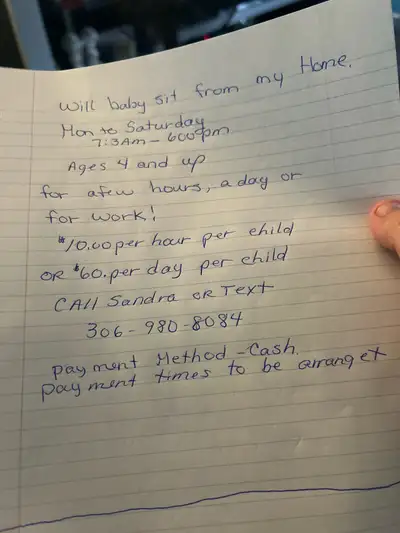 will baby sit from my Home.
Mon to Saturday
7:3AM - 600pm
Ages 4 and up
for afew hours, a day or
for work!
$10.00 per hour per child
OR $60. per day per child
CAll Sandra OR Text
306-980-8084
payment Method - Cash.
payment times to be arranget